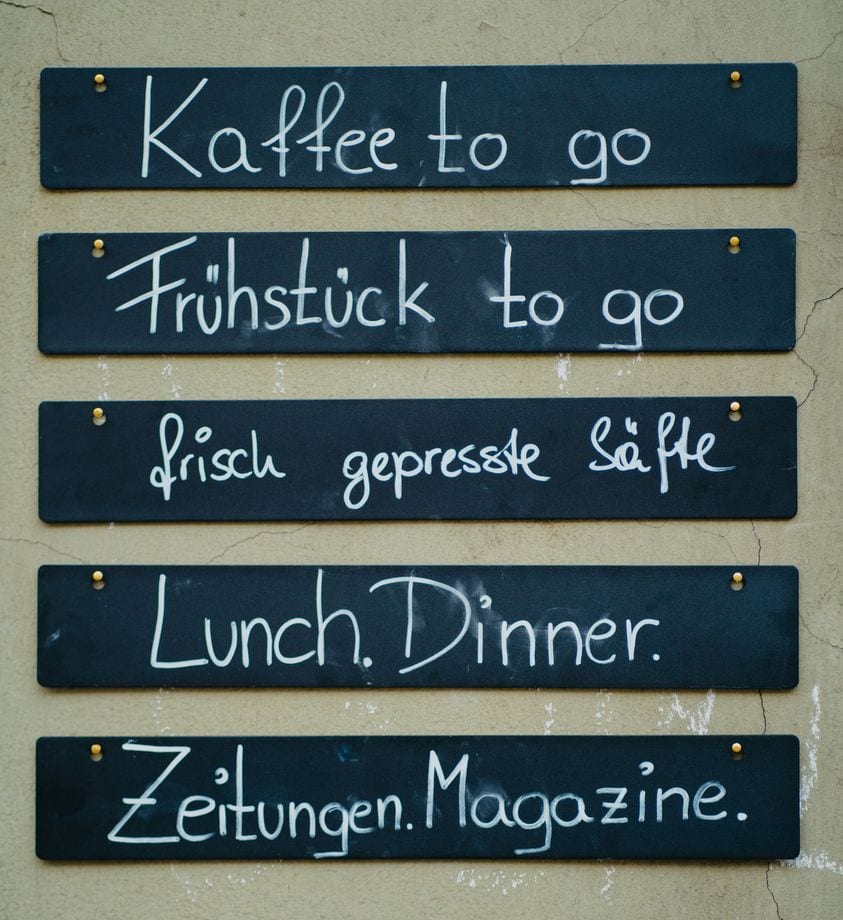 Kaffee to go
Frühstück to go
frisch gepresste Säfte
Lunch. Dinner.
Zeitungen. Magazine.